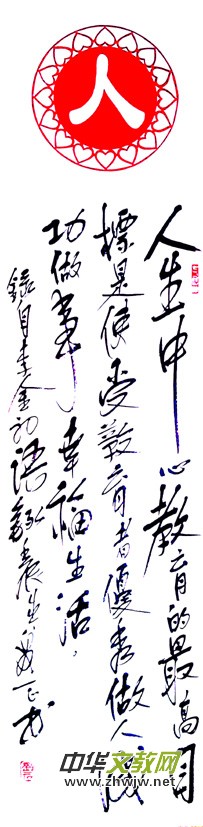 人
人生中心教育的最高目
標是使受教育者優秀做人成
功做事幸福生活，
錄自李金初語錄
中华文教网
www.zhwjw.net